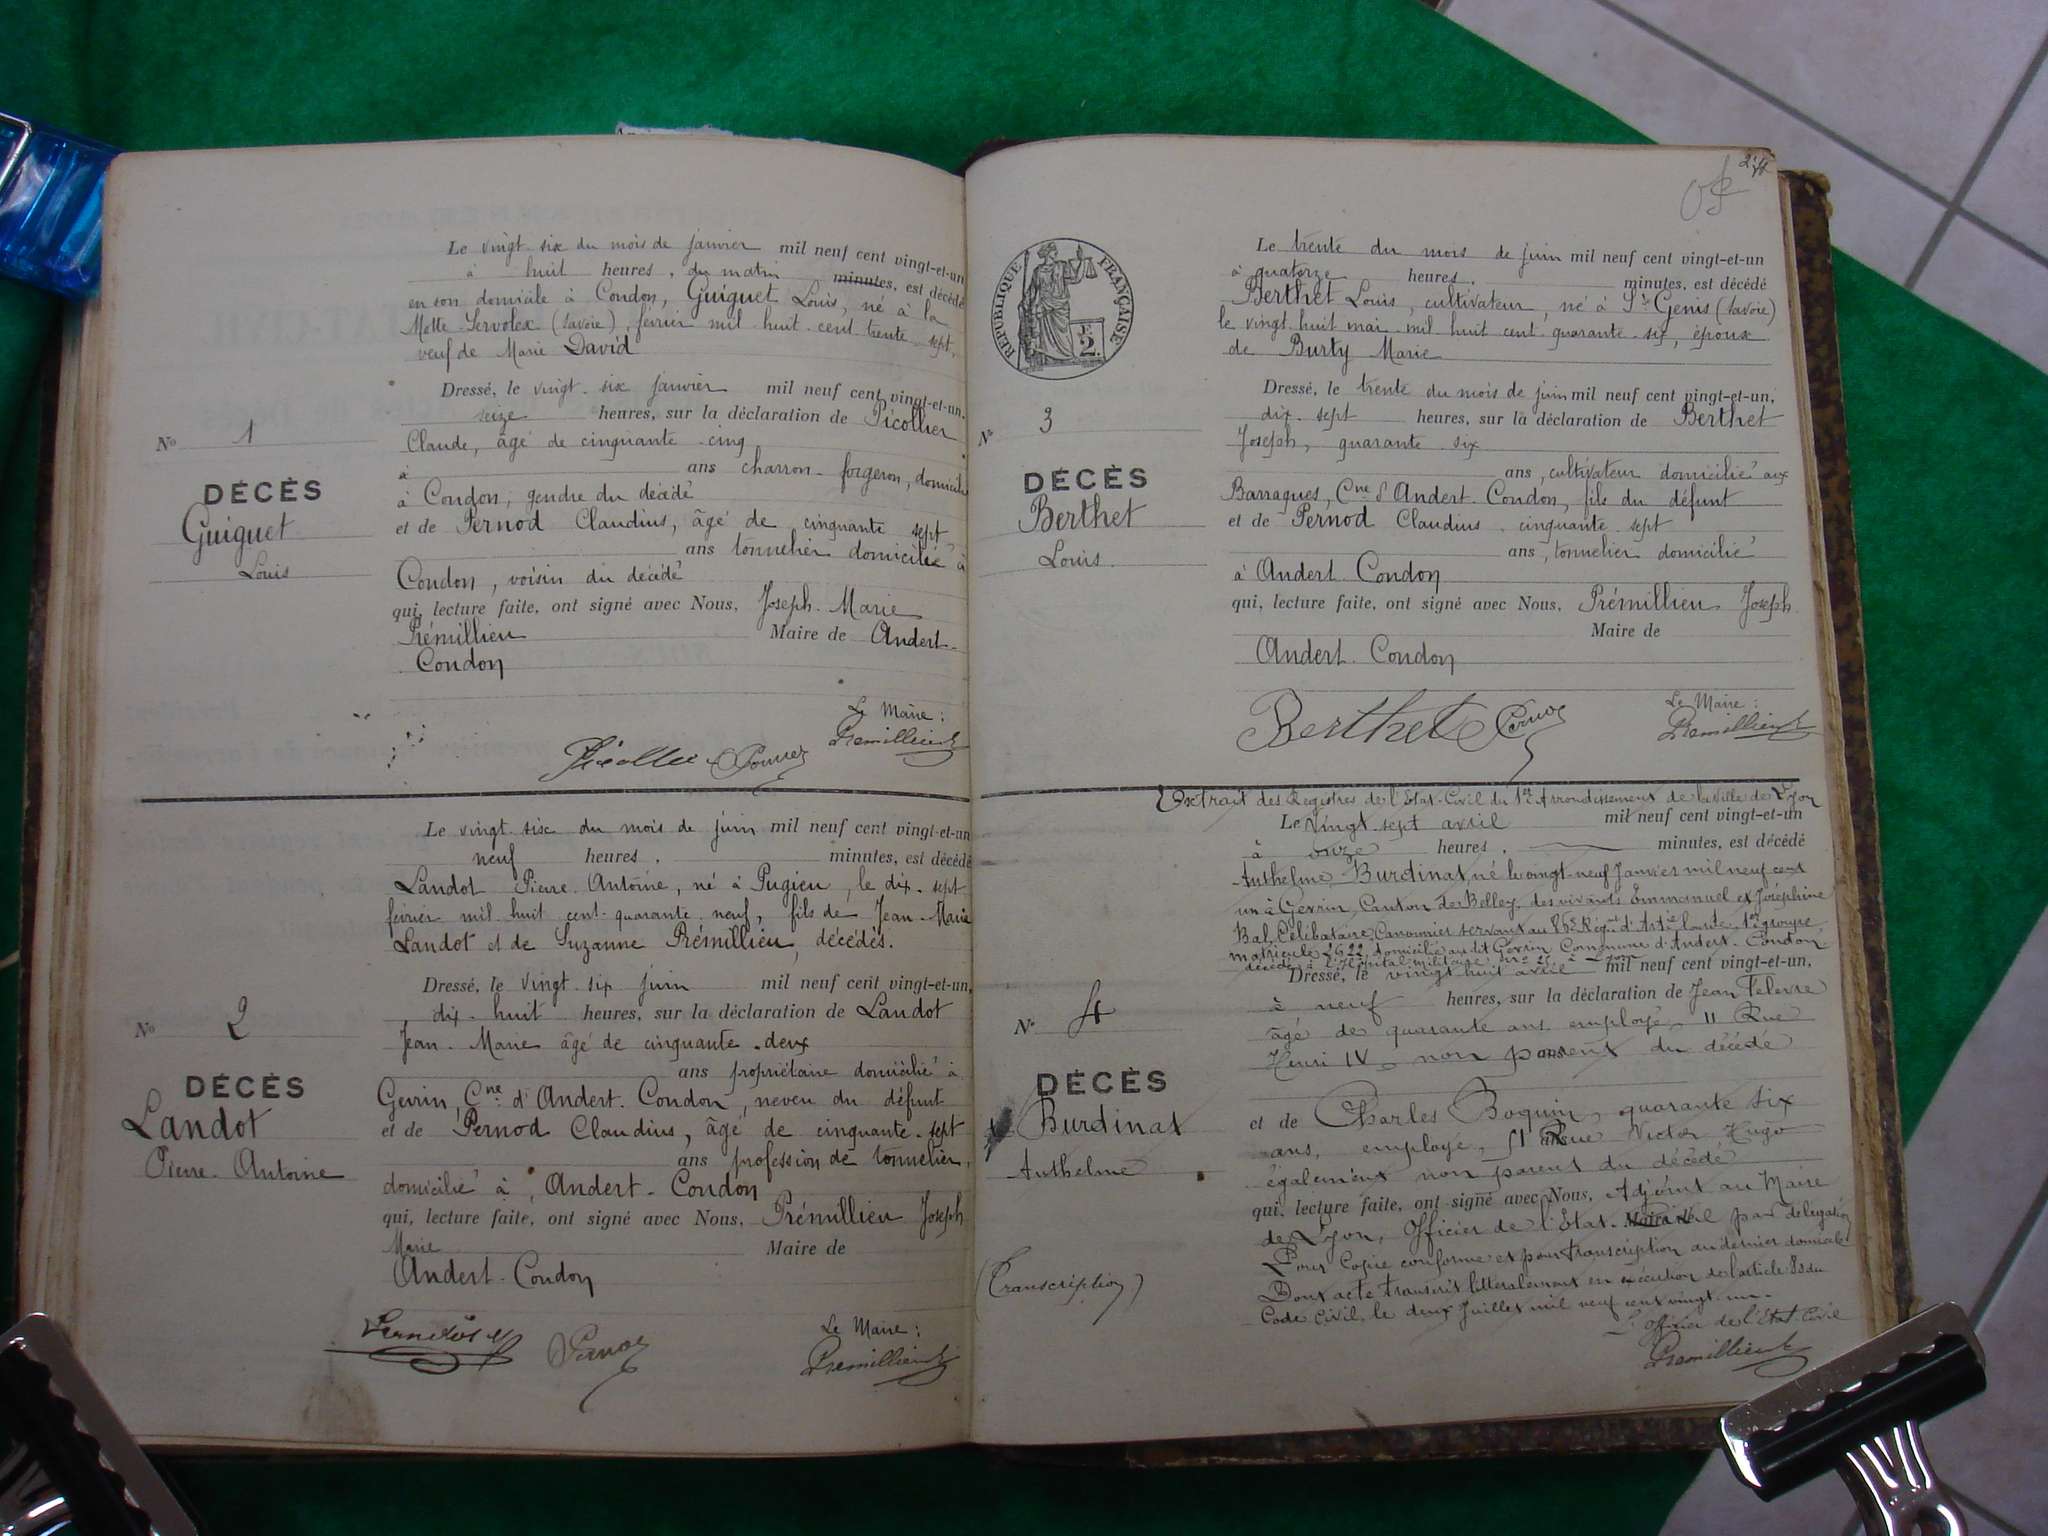 Le vingt-six du mois de janvier mil neuf cent vingt-et-un
à huit heures, du matin minutes, est décédé
en son domicile à Condon, Guiguet Louis, né à la
Motte-Servolex (Savoie), février mil huit cent trente sept,
veuf de Marie David
Dressé, le vingt-six janvier mil neuf cent vingt-et-un,
seize heures, sur la déclaration de Picollier
Claude, âgé de cinquante-cinq
à ans charron-forgeron, domicilié
à Condon, gendre du décédé
et de Pernod Claudius, âgé de cinquante sept
ans tonnelier domicilié à
Condon, voisin du décédé
qui, lecture faite, ont signé avec Nous, Joseph-Marie
Prémillieu Maire de Andert-
Condon
No 1
DÉCÈS
Guiguet
Louis
Le Maire :
Picollier Pernod Premillieu
Le vingt-six du mois de juin mil neuf cent vingt-et-un
neuf heures, minutes, est décédé
Landot Pierre-Antoine, né à Pugieu, le dix-sept
février mil huit cent quarante-neuf, fils de Jean-Marie
Landot et de Suzanne Prémillieu, décédés.
Dressé, le vingt-six juin mil neuf cent vingt-et-un,
dix-huit heures, sur la déclaration de Landot
Jean-Marie âgé de cinquante-deux
ans propriétaire domicilié à
Gevrin, Cne d'Andert-Condon, neveu du défunt
et de Pernod Claudius, âgé de cinquante-sept
ans profession de tonnelier,
domicilié à Andert-Condon
qui, lecture faite, ont signé avec Nous, Prémillieu Joseph
Marie Maire de
Andert-Condon
No 2
DÉCÈS
Landot
Pierre-Antoine
Le Maire :
Pernod Premillieu
2
RÉPUBLIQUE FRANÇAISE
2
Le trente du mois de juin mil neuf cent vingt-et-un
à quatorze heures, minutes, est décédé
Berthet Louis, cultivateur, né à St Genis (Savoie)
le vingt-huit mai mil huit cent quarante-six, époux
de Burty Marie
Dressé, le trente du mois de juin mil neuf cent vingt-et-un,
dix-sept heures, sur la déclaration de Berthet
Joseph, quarante-six
ans, cultivateur domicilié aux
Barraques, Cne d'Andert-Condon, fils du défunt
et de Pernod Claudius cinquante-sept
ans, tonnelier domicilié
à Andert-Condon
qui, lecture faite, ont signé avec Nous, Prémillieu Joseph
Maire de
Andert-Condon
No 3
DÉCÈS
Berthet
Louis
Le Maire :
Berthet Pernod Premillieu
Extrait des Registres de l'Etat-Civil du 1er Arrondissement de la Ville de Lyon
Le vingt-sept avril mil neuf cent vingt-et-un
à onze heures, minutes, est décédé
Anthelme Burdinat, né le vingt-neuf Janvier mil neuf cent
un à Gevrin, Canton de Belley, des vivants Emmanuel et Joséphine
Bal, Célibataire, Canonnier servant au Régt d'Artie lourde, 1er groupe
matricule 2622, domicilié audit Gevrin Commune d'Andert-Condon
décédé à l'Hôpital militaire à Lyon
Dressé, le vingt huit avril mil neuf cent vingt-et-un,
à neuf heures, sur la déclaration de Jean
âgé de quarante ans employé, 11 Rue
Henri IV, non parent du décédé
et de Charles Boquin, quarante six
ans, employé, 51 Rue Victor Hugo
également non parent du décédé
qui, lecture faite, ont signé avec Nous, Adjoint au Maire
de Lyon, Officier de l'Etat-Civil par délégation
Pour Copie conforme et pour transcription au dernier domicile
Dont acte transcrit littéralement en exécution de l'article 80 du
Code Civil, le deux Juillet mil neuf cent vingt-un.
L'officier de l'Etat-Civil
Premillieu
No 4
DÉCÈS
Burdinat
Anthelme
(Transcription)